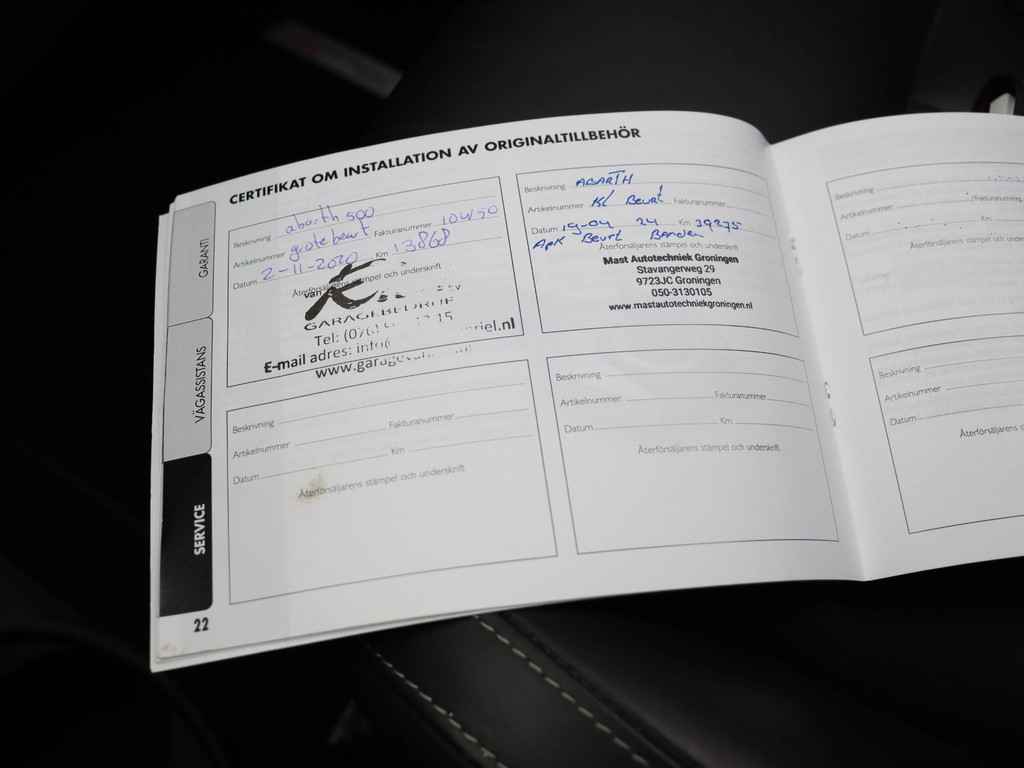 CERTIFIKAT OM INSTALLATION AV ORIGINALTILLBEHÖR
GARANTI
VÄGASSISTANS
SERVICE
Beskrivning abarth 500
Artikelnummer grote beurt Fakturanummer 10W50
Datum 2-11-2020 Km 13868
Återförsäljarens stämpel och underskrift
van
GARAGEBEDRIJF
Tel:
E-mail adres: riel.nl
Beskrivning ABARTH
Artikelnummer Kl Beurt Fakturanummer
Datum 19-04 24 Km
APK Beurt Banden
Återförsäljarens stämpel och underskrift
Mast Autotechniek Groningen
Stavangerweg 29
9723JC Groningen
050-3130105
www.mastautotechniekgroningen.nl
Beskrivning
Artikelnummer Fakturanummer
Datum Km
Återförsäljarens stämpel och underskrift
Beskrivning
Artikelnummer Fakturanummer
Datum Km
Återförsäljarens stämpel och underskrift
22
Beskrivning
Artikelnummer
Datum Km
Återförsäljarens stämpel och
Beskrivning
Artikelnummer
Datum
Återförsäljarens